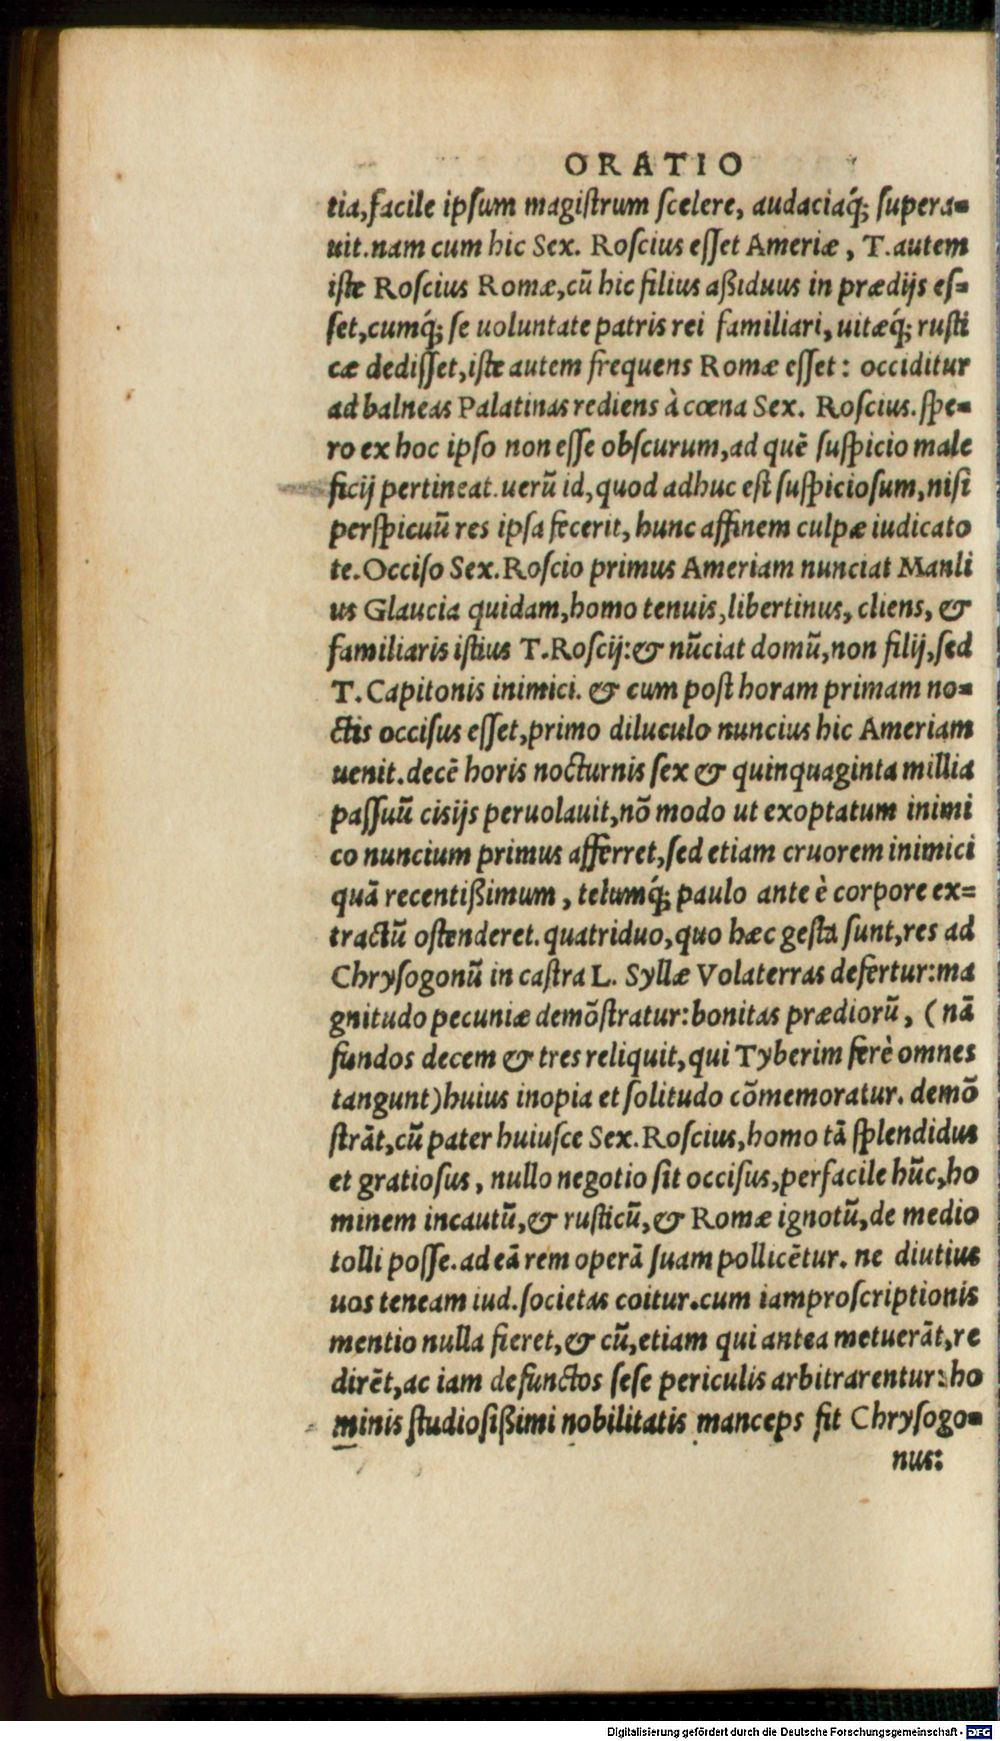 ORATIO
tia, facile ipſum magiſtrum ſcelere, audaciaq́; ſupera-
uit. nam cum hic Sex. Roſcius eſſet Ameriæ, T. autem
iſte Roſcius Romæ, cũ hic filius aßiduus in prædijs eſ-
ſet, cumq́; ſe uoluntate patris rei familiari, uitæq́; ruſti
cæ dediſſet, iſte autem frequens Romæ eſſet: occiditur
ad balneas Palatinas rediens à cœna Sex. Roſcius. ſpe-
ro ex hoc ipſo non eſſe obſcurum, ad quẽ ſuſpicio male
ficij pertineat. uerũ id, quod adhuc eſt ſuſpicioſum, niſi
perſpicuũ res ipſa fecerit, hunc affinem culpæ iudicato
te. Occiſo Sex. Roſcio primus Ameriam nunciat Manli
us Glaucia quidam, homo tenuis, libertinus, cliens, &
familiaris iſtius T. Roſcij: & nũciat domũ, non filij, ſed
T. Capitonis inimici. & cum poſt horam primam no-
ctis occiſus eſſet, primo diluculo nuncius hic Ameriam
uenit. decẽ horis nocturnis ſex & quinquaginta millia
paſſuũ ciſijs peruolauit, nõ modo ut exoptatum inimi
co nuncium primus afferret, ſed etiam cruorem inimici
quã recentißimum, telumq́; paulo ante è corpore ex-
tractũ oſtenderet. quatriduo, quo hæc geſta ſunt, res ad
Chryſogonũ in caſtra L. Syllæ Volaterras defertur: ma
gnitudo pecuniæ demõſtratur: bonitas prædiorũ, (nã
fundos decem & tres reliquit, qui Tyberim ferè omnes
tangunt) huius inopia et ſolitudo cõmemoratur. demõ
ſtrãt, cũ pater huiuſce Sex. Roſcius, homo tã ſplendidus
et gratioſus, nullo negotio ſit occiſus, perfacile hũc, ho
minem incautũ, & ruſticũ, & Romæ ignotũ, de medio
tolli poſſe. ad eã rem operã ſuam pollicẽtur. ne diutius
uos teneam iud. ſocietas coitur. cum iam proſcriptionis
mentio nulla fieret, & cũ, etiam qui antea metuerãt, re
dirẽt, ac iam defunctos ſeſe periculis arbitrarentur: ho
minis ſtudioſißimi nobilitatis manceps fit Chryſogo-
nus:
Digitalisierung gefördert durch die Deutsche Forschungsgemeinschaft - DFG